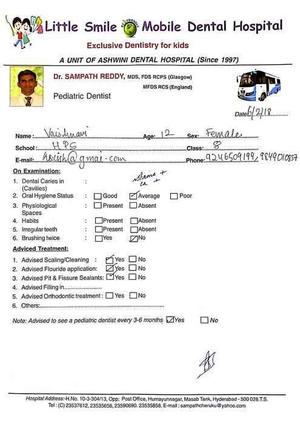 Little Smile Mobile Dental Hospital
Exclusive Dentistry for kids
A UNIT OF ASHWINI DENTAL HOSPITAL (Since 1997)
Dr. SAMPATH REDDY, MDS, FDS RCPS (Glasgow)
MFDS RCS (England)
Pediatric Dentist
Date 6/2/18
Name: Vaishnavi Age: 12 Sex: Female
School: HPS Class: 8
E-mail: harish@gmai-com Phone: 9246509199, 9849010857
On Examination:
1. Dental Caries in : Stains +
(Cavities) ca +
2. Oral Hygiene Status : Good Average Poor
3. Physiological : Present Absent
Spaces
4. Habits : Present Absent
5. Irregular teeth : Present Absent
6. Brushing twice : Yes No
Adviced Treatment:
1. Advised Scaling/Cleaning : Yes No
2. Advised Flouride application: Yes No
3. Advised Pit & Fissure Sealants: Yes No
4. Advised Filling in
5. Advised Orthodontic treatment : Yes No
6. Others:
Note: Advised to see a pediatric dentist every 3-6 months Yes No
Hospital Address: H.No. 10-3-304/13, Opp: Post Office, Humayunnagar, Masab Tank, Hyderabad - 500 028.T.S.
Tel: (C) 23537612, 23535656, 23590690. 23535858, E-mail : sampathcheruku@yahoo.com